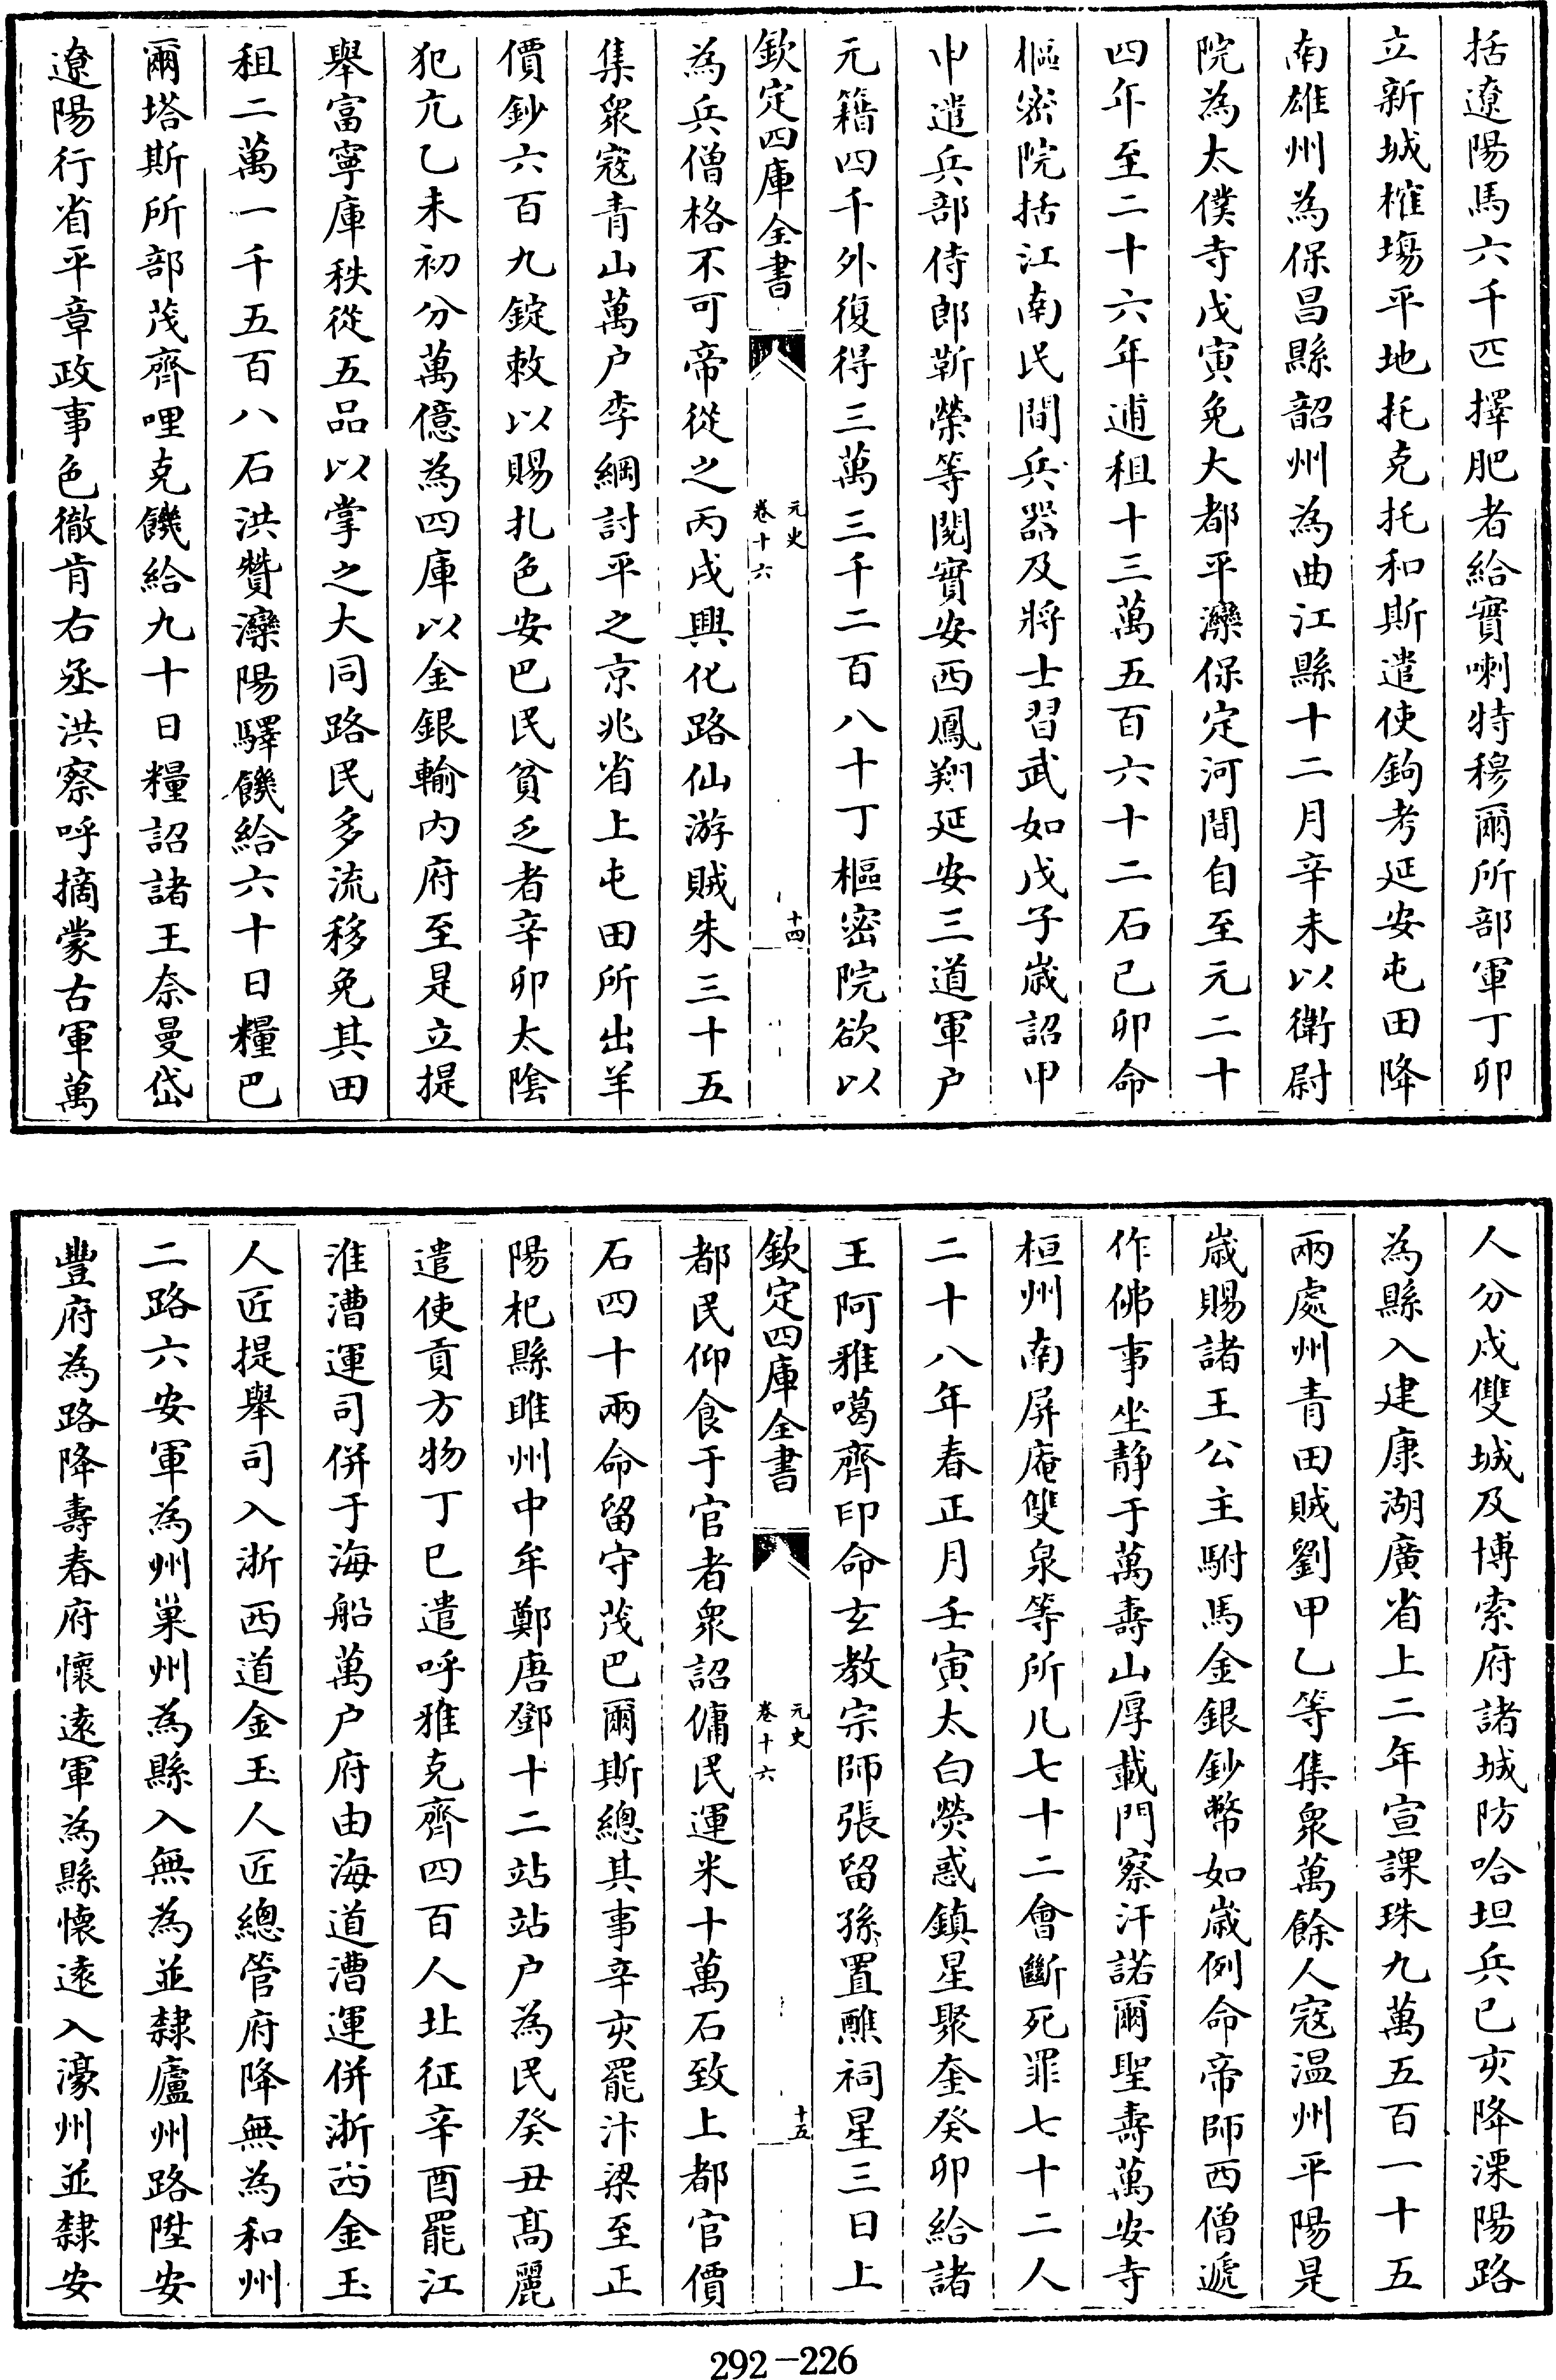 括遼陽馬六千匹擇肥者給實喇特穆爾所部軍丁卯
立新城榷塲平地托克托和斯遣使鉤考延安屯田降
南雄州為保昌縣韶州為曲江縣十二月辛未以衛尉
院為太僕寺戊寅免大都平灤保定河間自至元二十
四年至二十六年逋租十三萬五百六十二石己卯命
樞宻院括江南民間兵器及將士習武如戊子歲詔甲
申遣兵部侍郎靳榮等閱實安西鳳翔延安三道軍户
元籍四千外復得三萬三千二百八十丁樞密院欲以
欽定四庫全書
元史
卷十六
十四
為兵僧格不可帝從之丙戌興化路仙游賊朱三十五
集衆寇青山萬户李綱討平之京兆省上屯田所出羊
價鈔六百九錠敕以賜扎色安巴民貧乏者辛卯太陰
犯亢乙未初分萬億為四庫以金銀輸內府至是立提
舉富寧庫秩從五品以掌之大同路民多流移免其田
租二萬一千五百八石洪贊灤陽驛饑給六十日糧巴
爾塔斯所部茂齊哩克饑給九十日糧詔諸王奈曼岱
遼陽行省平章政事色徹肯右丞洪察呼摘蒙古軍萬
人分戍雙城及博索府諸城防哈坦兵己亥降溧陽路
為縣入建康湖廣省上二年宣課珠九萬五百一十五
兩處州青田賊劉甲乙等集衆萬餘人寇温州平陽是
歲賜諸王公主駙馬金銀鈔幣如歲例命帝師西僧遞
作佛事坐静于萬壽山厚載門察汗諾爾聖壽萬安寺
桓州南屏庵雙泉等所凡七十二會斷死罪七十二人
二十八年春正月壬寅太白熒惑鎮星聚奎癸卯給諸
王阿雅噶齊印命玄教宗師張留孫置醮祠星三日上
欽定四庫全書
元史
卷十六
十五
都民仰食于官者衆詔傭民運米十萬石致上都官價
石四十兩命留守茂巴爾斯總其事辛亥罷汴梁至正
陽杞縣睢州中牟鄭唐鄧十二站站户為民癸丑高麗
遣使貢方物丁巳遣呼雅克齊四百人北征辛酉罷江
淮漕運司併于海船萬户府由海道漕運併浙西金玉
人匠提舉司入浙西道金玉人匠總管府降無為和州
二路六安軍為州巢州為縣入無為並隸廬州路陞安
豐府為路降壽春府懷遠軍為縣懷遠入濠州並隸安
292-226